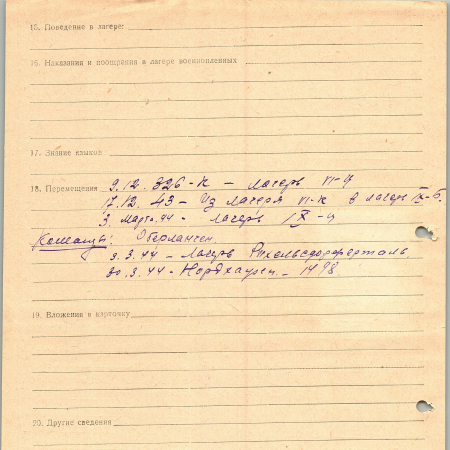 15. Поведение в лагере:
16. Наказания и поощрения в лагере военнопленных
17. Знание языков
18. Перемещения 9.12. 326-К – лагерь
17.12. 43 – Из лагеря в лагерь IX-Б.
3. Марта. 44 – лагерь IX-
Команды: Оберланген.
3.3.44 – лагерь
20.3.44 – Нордхаузен – 1498.
19. Вложения в карточку
20. Другие сведения